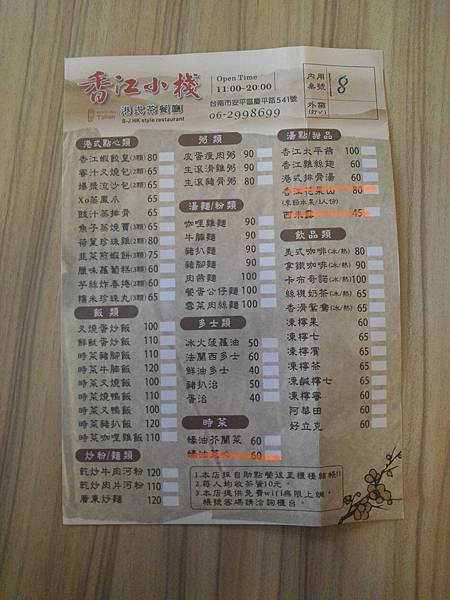 香江小棧
港式茶餐廳
S-J HK style restaurant
Open Time
11:00~20:00
台南市安平區慶平路541號
06-2998699
內用
桌號
8
外帶
(打✓)
港式點心類
香江蝦餃皇(3顆) 80
蜜汁叉燒包(2顆) 60
爆漿流沙包(2顆) 65
Xo蒸鳳爪 65
豉汁蒸排骨 65
魚子蒸燒賣(3顆) 65
荷葉珍珠雞(2顆) 80
韭菜煎蝦餅(3顆) 75
臘味蘿蔔糕(3顆) 60
芋絲炸春捲(2顆) 60
糯米珍珠丸(3顆) 65
飯類
叉燒蛋炒飯 100
鮮魷蛋炒飯 110
時菜豬腳飯 110
時菜牛腩飯 120
時菜叉燒飯 110
時菜叉鴨飯 110
時菜燒鴨飯 110
時菜豬扒飯 110
時菜咖哩雞飯 110
炒粉/麵類
乾炒牛肉河粉 120
乾炒肉片河粉 110
廣東炒麵 120
粥類
皮蛋瘦肉粥 90
生滾滑雞粥 90
生滾豬骨粥 80
湯麵/粉類
咖哩雞麵 90
牛腩麵 90
豬扒麵 90
豬腳麵 90
肉燕麵 100
餐蛋公仔麵 90
雪菜肉絲麵 100
多士類
冰火菠蘿油 50
法蘭西多士 60
鮮油多士 40
豬扒治 50
蛋治 40
時菜
蠔油芥蘭菜 60
蠔油 60
湯點/甜品
香江太平燕 100
香江雞絲翅 60
港式排骨湯 60
香江花果山 80
(季節水果/1人份)
西米露 45
飲品類
美式咖啡(冰/熱) 80
拿鐵咖啡(冰/熱) 90
卡布奇諾(冰/熱) 100
絲襪奶茶(冰/熱) 65
香滑鴛鴦(冰/熱) 65
凍檸果 60
凍檸七 60
凍檸賓 65
凍檸茶 60
凍鹹檸七 65
凍檸蜜 60
阿華田 60
好立克 60
1.本店採自助點餐後至櫃檯結帳!!
2.每人均收茶資10元。
3.本店提供免費wifi無限上網,
帳號密碼請洽詢櫃台。